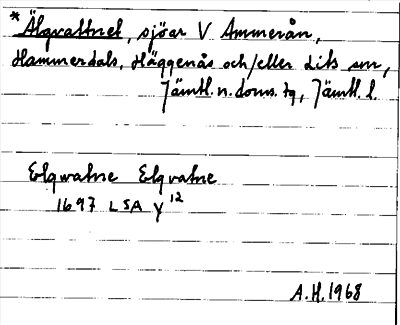 * Älgvattnet, sjöar V Ammerån,
Hammerdals, Häggenås och/eller Lits sn,
Jämtl. n. doms. tg, Jämtl. l.
Elgwatne Elgvatne
1697 LSA Y 12
A.H. 1968